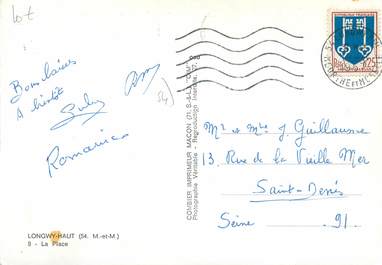 lot
Bons baisers
A bientôt
Romarico
54
LONGWY-HAUT (54. M.-et-M.)
8 - La Place
COMBIER IMPRIMEUR MACON (71. S.-&-L.)
Photographie Véritable - Reproduction Interdite
REPUBLIQUE FRANÇAISE
0,25
MEURTHE ET MOSELLE
Mr et Mme J. Guillaume
13, Rue de la Vieille Mer
Saint-Denis
Seine. 91.